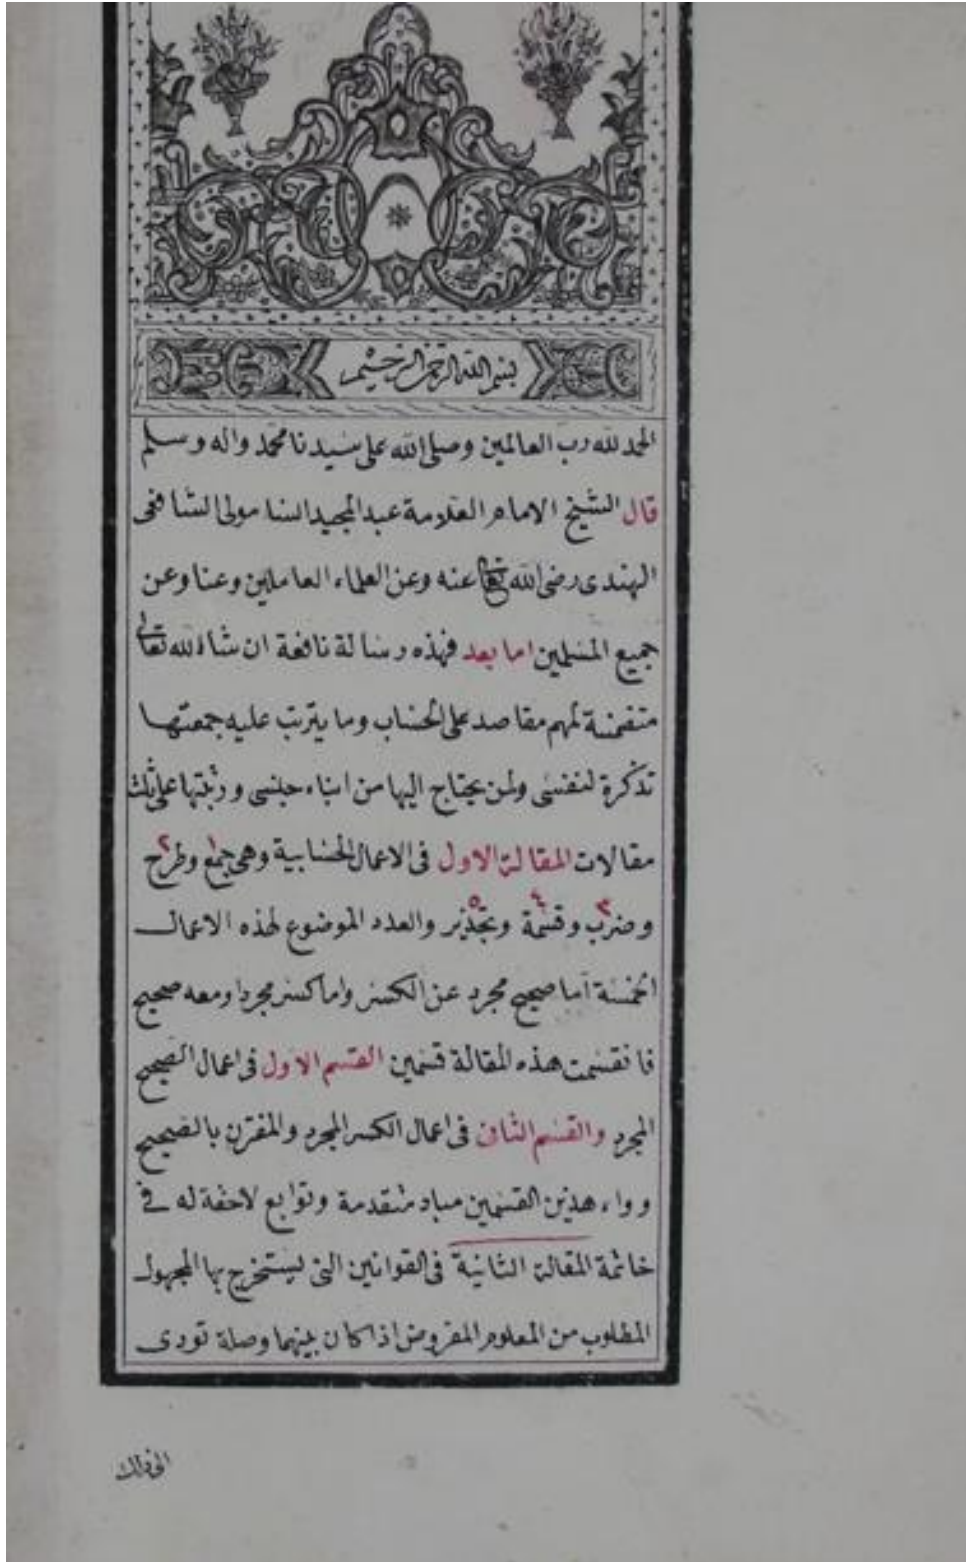 بسم الله الرحمن الرحيم
الحمد لله رب العالمين وصلى الله على سيدنا محمد واله وسلم
قال الشيخ الامام العلامة عبد المجيد السامولى الشافعى
الهندى رضى الله تعالى عنه وعن العلماء العاملين وعنا وعن
جميع المسلمين اما بعد فهذه رسالة نافعة ان شاء الله تعالى
متضمنة لمهم مقاصد على الحساب وما يترتب عليه جمعتها
تذكرة لنفسى ولمن يحتاج اليها من ابناء جنسى ورتبتها على ثلث
مقالات المقالة الاول فى الاعمال الحسابية وهى جمع ١ وطرح ٢
وضرب ٣ وقسمة ٤ وتجذير ٥ والعدد الموضوع لهذه الاعمال
الخمسة اما صحيح مجرد عن الكسر واما كسر مجرد او معه صحيح
فانقسمت هذه المقالة قسمين القسم الاول فى اعمال الصحيح
المجرد والقسم الثانى فى اعمال الكسر المجرد والمقترن بالصحيح
وواء هذين القسمين مباد متقدمة وتوابع لاحقة له فى
خاتمة المقالة الثانية فى القوانين التى يستخرج بها المجهول
المطلوب من المعلوم المفروض اذا كان بينهما وصلة تودى
الى ذلك